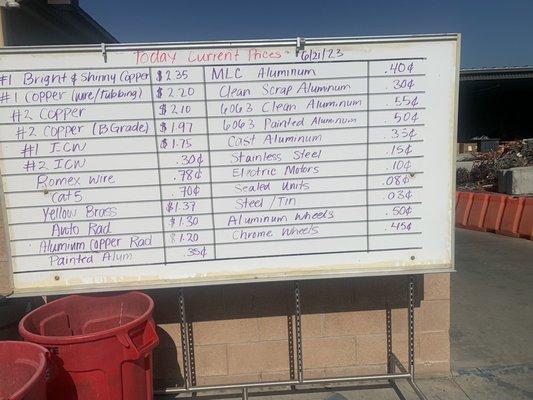 Today Current Prices 6/21/23
#1 Bright & Shinny Copper $2.35 MLC Aluminum .40¢
#1 Copper (wire/tubbing) $2.20 Clean Scrap Aluminum .30¢
#2 Copper $2.10 6063 Clean Aluminum .55¢
#2 Copper (B Grade) $1.97 6063 Painted Aluminum .50¢
#1 ICW $1.75 Cast Aluminum .35¢
#2 ICW .30¢ Stainless Steel .15¢
Romex wire .78¢ Electric Motors .10¢
Cat5 .70¢ Sealed Units .08¢
Yellow Brass $1.37 Steel/Tin .03¢
Auto Rad $1.30 Aluminum Wheels .50¢
Aluminum Copper Rad $1.20 Chrome Wheels .45¢
Painted Alum .35¢